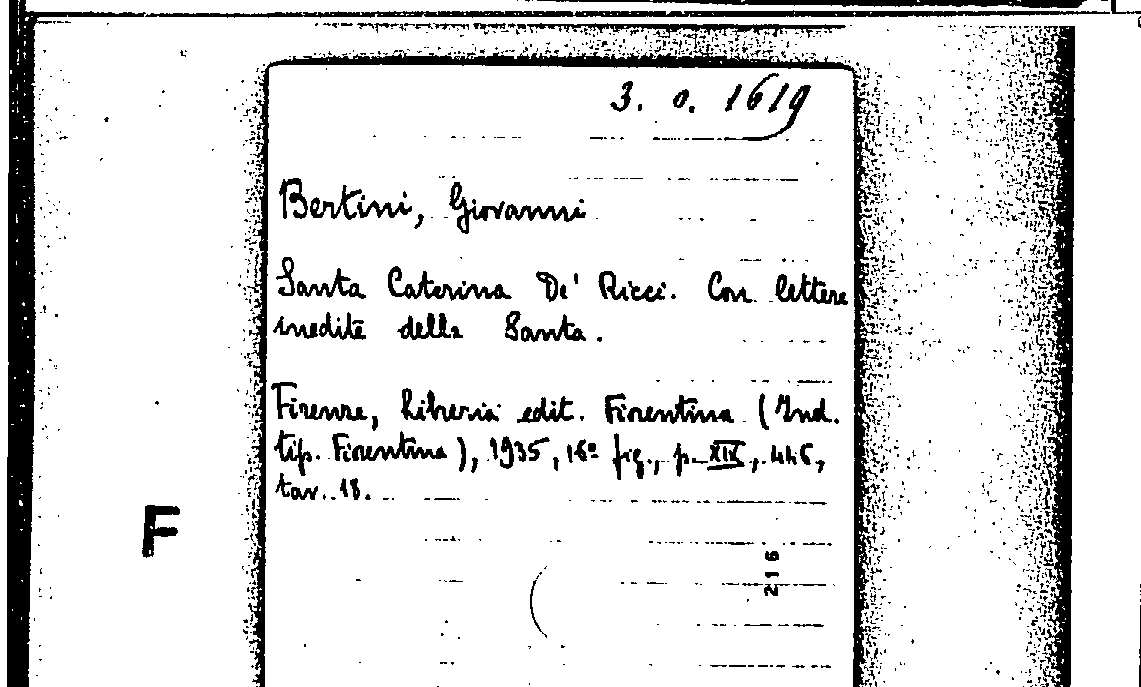 3. o. 1619
Bertini, Giovanni
Santa Caterina De' Ricci. Con lettere
inedite della Santa.
Firenze, Libreria edit. Fiorentina (Ind.
tip. Fiorentina), 1935, 16º fig., p. XIX, 446,
tav. 18.
F
216